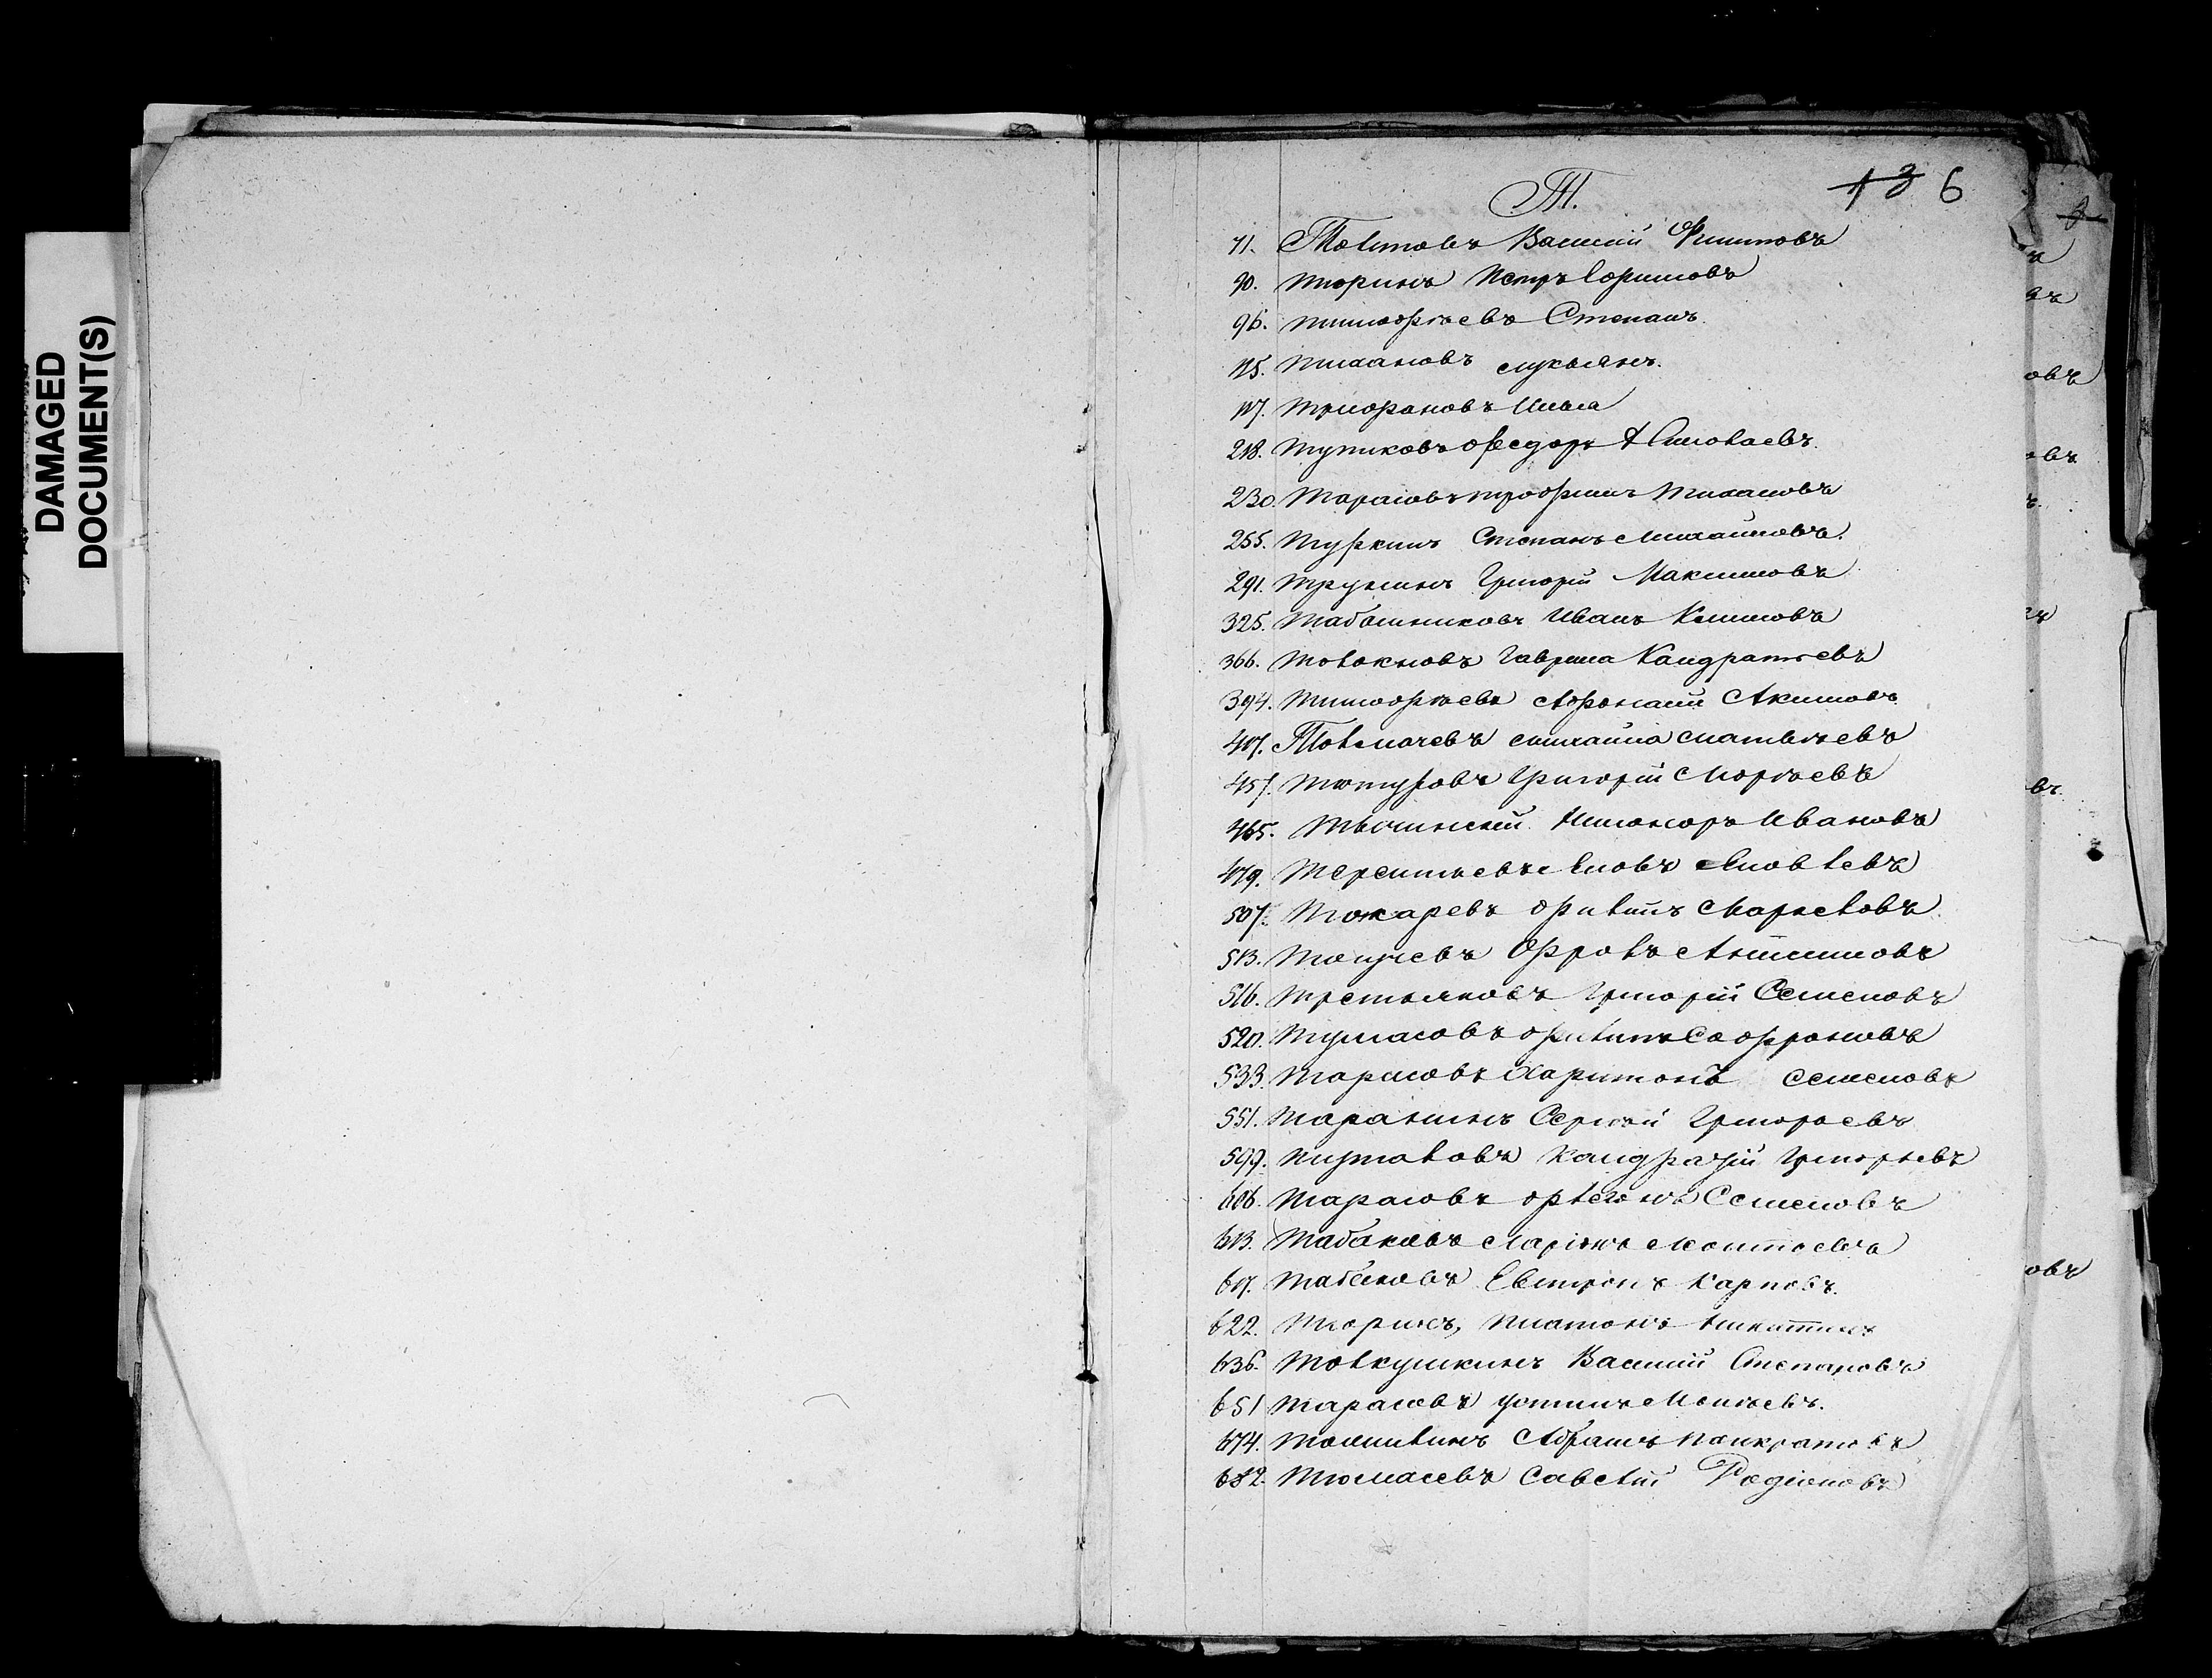 DAMAGED
DOCUMENT(S)
Т.
13 6
71. Толстовъ Василий Филиповъ
90. Тюринъ Петръ Ефимовъ
96. Тимофѣевъ Степанъ
125. Тихановъ Лукьянъ.
127. Трифановъ Илья
218. Тупиковъ Федоръ Николаевъ
230. Тарасовъ Трофимъ Тихановъ
255. Туркинъ Степанъ Михайловъ.
291. Трунинъ Григорій Максимовъ
325. Табашниковъ Иванъ Климовъ
366. Толокновъ Гаврила Кандратьевъ
394. Тимофѣевъ Афонасий Акимовъ
417. Толмачевъ Михайла Матвѣевъ
457. Тютуровъ Григорій
465. Никоноръ Ивановъ
479. Терентьевъ Яковъ Яковлевъ
507. Токаревъ Филипъ Маркеловъ
513. Фролъ Антиповъ
516. Третьяковъ Григорій Семеновъ
520. Тумасовъ Филипъ Софроновъ
533. Тарасовъ Харитонъ Семеновъ
551. Таранинъ Сергѣй Григорьевъ
599. Кандратій Григорьевъ
606. Тарасовъ Семеновъ
613. Табаковъ Ларіонъ
617. Табаковъ Карповъ.
622. Тюринъ, Платонъ
636. Толкушкинъ Василий Степановъ
651 Тарасовъ
674. Абрамъ Панкратовъ
682. Савелий Родіоновъ
ъ
въ
овъ
овъ
ъ.
въ
овъ